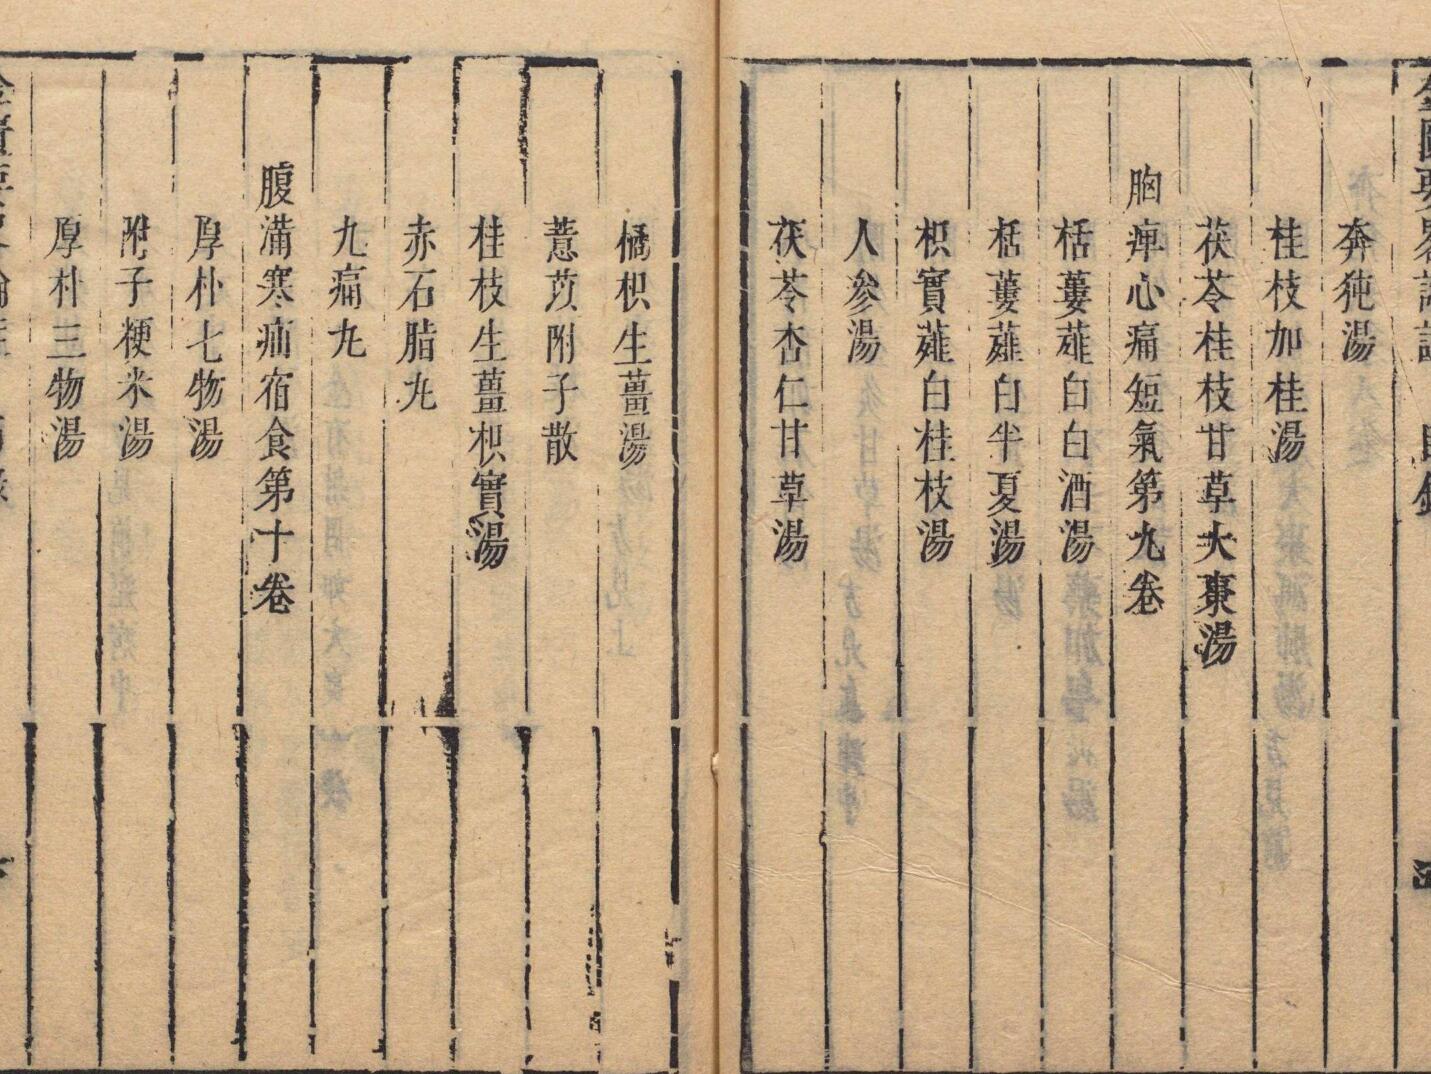 奔㹠湯
桂枝加桂湯
茯苓桂枝甘草大棗湯
胸痺心痛短氣第九卷
栝蔞薤白白酒湯
栝蔞薤白半夏湯
枳實薤白桂枝湯
人參湯
茯苓杏仁甘草湯
橘枳生薑湯
薏苡附子散
桂枝生薑枳實湯
赤石脂丸
九痛丸
腹滿寒疝宿食第十卷
厚朴七物湯
附子粳米湯
厚朴三物湯